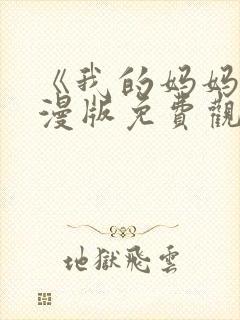 《我的妈妈
漫版免費觀
地獄飛雲